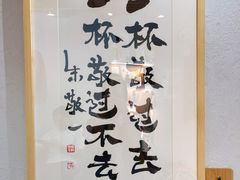 杯敬过去
杯敬过不去
朱敬一